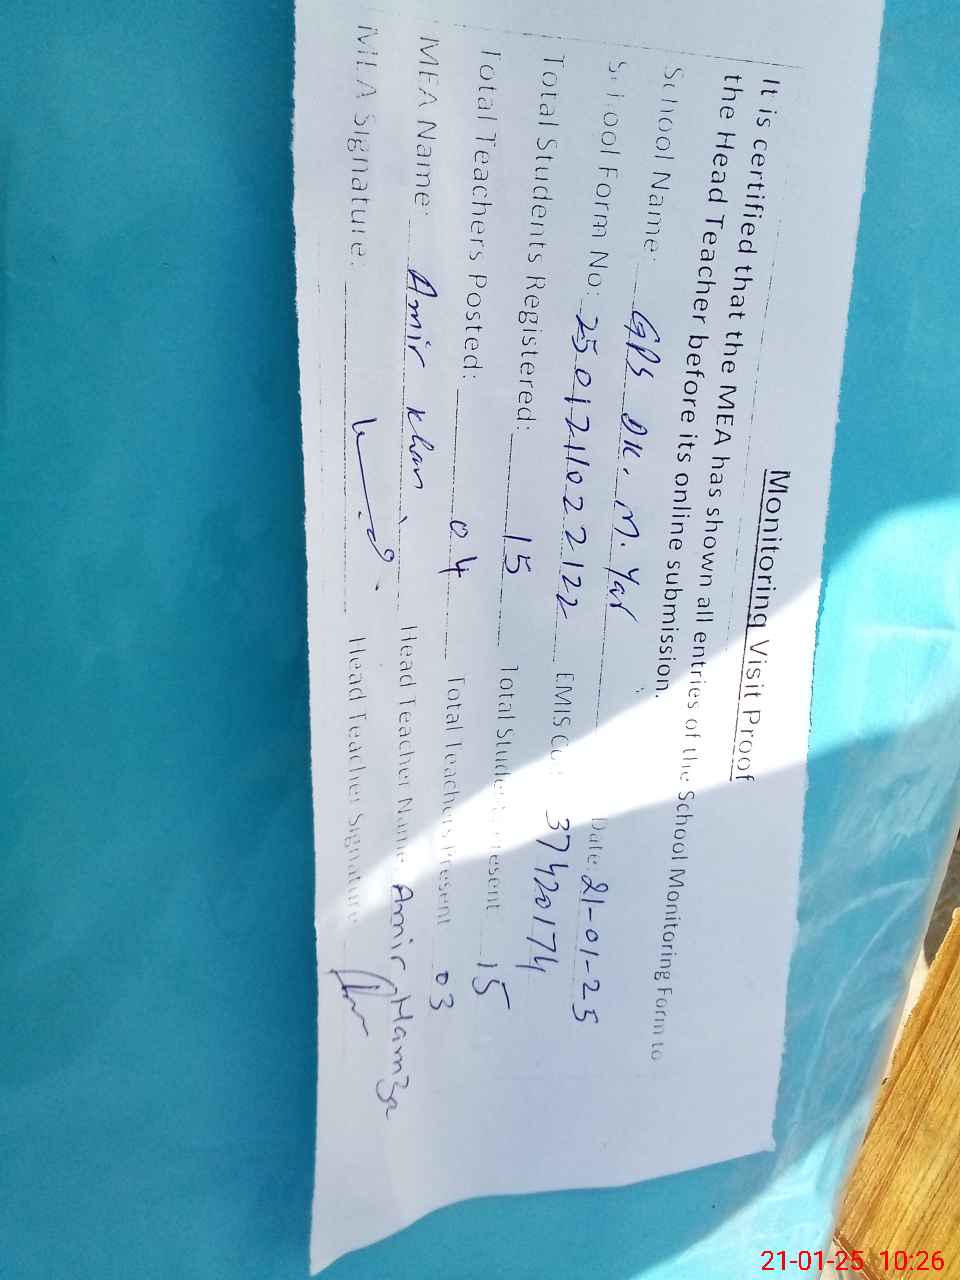 Monitoring Visit Proof
It is certified that the MEA has shown all entries of the School Monitoring Form to
the Head Teacher before its online submission.
School Name: GPS DK. M. Yar Date: 21-01-25
School Form No: 2501211022122 EMIS Co : 37420174
Total Students Registered: 15 Total Students Present 15
Total Teachers Posted: 04 Total Teachers Present 03
MEA Name: Amir Khan Head Teacher Name Amir Hamza
MEA Signature: Head Teacher Signature
21-01-25 10:26